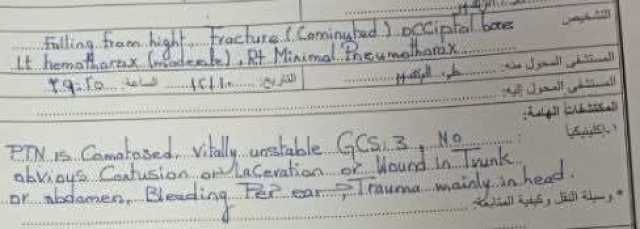 التشخيص
Falling from hight. Fracture (Cominuted) occiptal bone
Lt hemothorax (moderate), Rt Minimal Pneumothorax
المستشفى المحول منه:
التاريخ الساعة
المستشفى المحول إليه:
المكتشفات الهامة:
١- إكلينيكيا:
PTN is Comatosed, vitally unstable GCS: 3, No
obvious Contusion or Laceration or Wound in Trunk
or abdomen, Bleeding Per ear, Trauma mainly in head.
* وسيلة النقل وكيفية المتابعة: